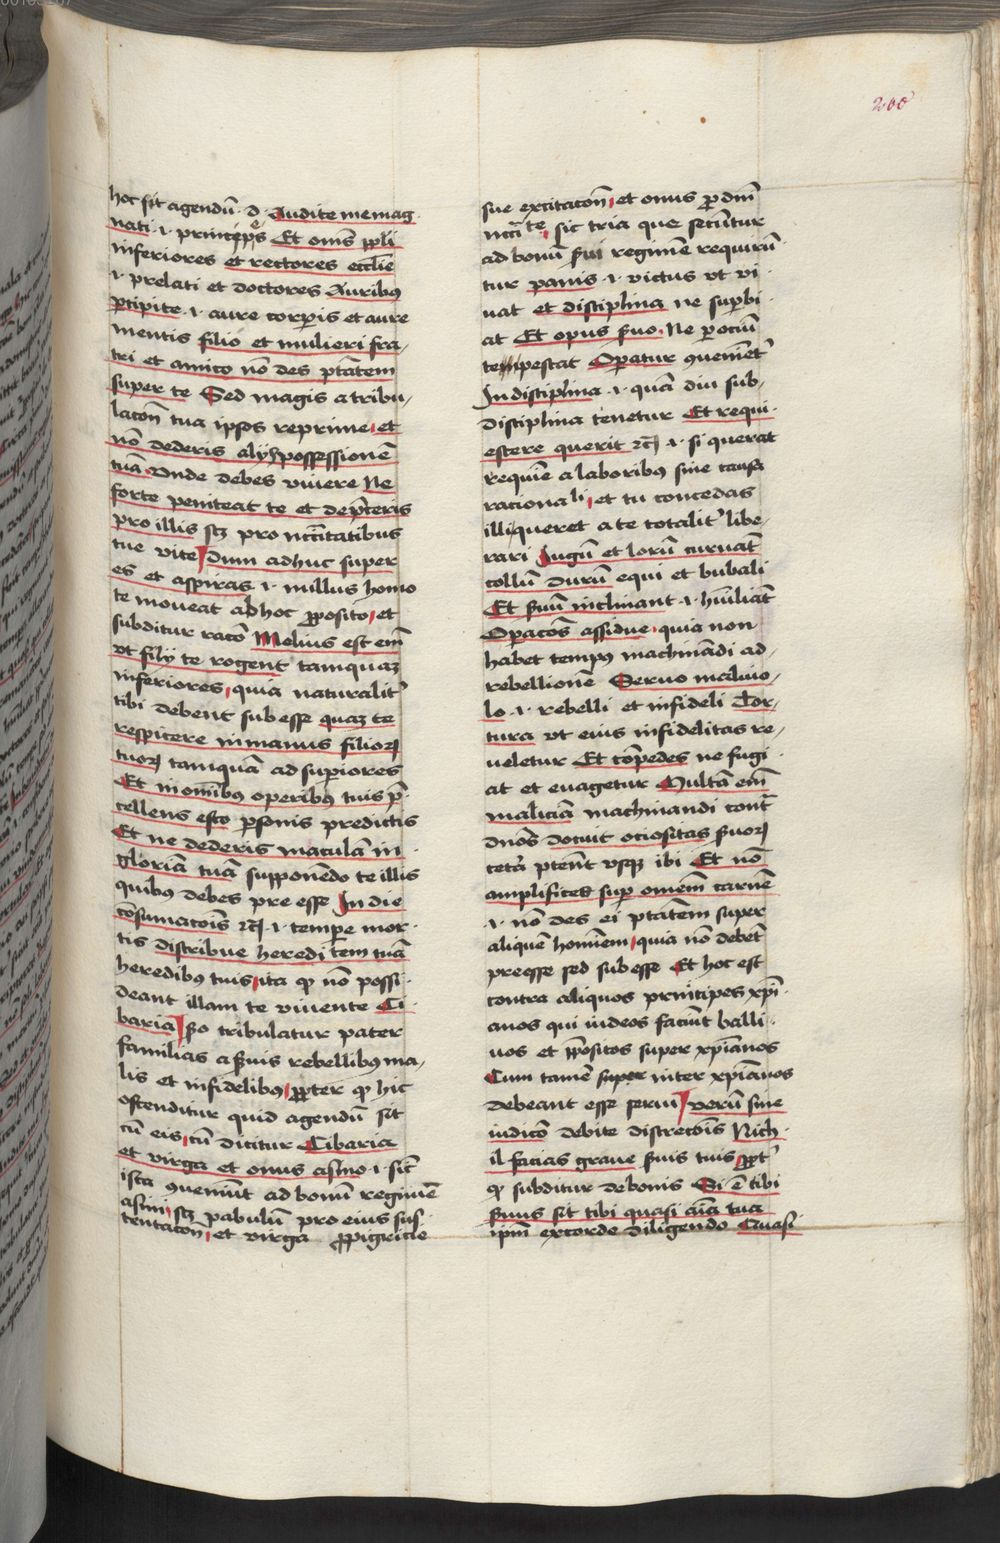 260
hoc sit agendū · d · Audite me mag
nati · i · principes Et om̄s ppl̄i
inferiores et rectores eccl̄ie
· i · prelati et doctores Auribꝰ
ꝑcipite · i · aure corꝑis et aure
mentis filio et mulieri fra,
tri et amico nō des ptātem
super te Sed magis a tribu,
lacōn tua ipsos reprime, et
nō dederis alijs possessionē
tuā. Unde debes vivere Ne
forte peniteat te et dep̄ceris
pro illis scꝫ pro nccītatibus
tue vite Dum adhuc super
es et aspiras · i · nullus homo
te moveat ab hoc ꝓposito, et
subditur racō Melius est em̄
vt filij te rogent tamquaꝫ
inferiores, quia naturalit᷑
tibi debent subesse quaꝫ te
respicere in manus filioꝝ
tuoꝝ tamquā ad suꝑiores
Et in om̄ibꝰ operibꝰ tuis p̄
cellens esto ꝑsonis predictis
Et ne dederis maculā in
gloriā tuā supponendo te illis
quibꝰ debes pre esse In die
cōsumacōis ⁊cꝫ · i · tempe mor
tis distribue heredi tem tuā
heredibꝰ tuis, ita ꝙ nō possi
deant illam te vivente Ci
baria ßo tribulatur pater
familias a ßuis rebellibꝰ ma,
lis et infidelibꝰ, ꝓpter ꝙ hic
ostenditur quid agendū sit
cū eis, cū dicitur Cibaria
et virga et onus asīno · i · sic̄
ista ꝯveniūt ad bonū regimē
asini, scꝫ pabulū pro eius sus
tentacōn, et virga ꝓ pigricie
sue excitacōn, et onus ꝓ dn̄i
ncc̄ite, sic tria que secūtur
ad bonū ßui regimē requirū
tur panis · i · victus vt vi
vat et disciplina ne suꝑbi
at Et opus ßuo, Ne ꝑ ociū
tepestat Oꝑatur ꝯveniēt᷑
In disciplina · i · quā diu sub,
disciplina tenetur Et requi
estere querit ⁊cꝫ · i · si querat
requiē a laboribꝰ sine causa
racionali, et tu concedas
illi queret a te totalit᷑ libe,
rari Jugū et lorū curvāt
collū durū equi et bubali
Et ßuū inclinant · i · hūiliāt
Oꝑacōs assidue · quia non
habet tempꝰ machināndi ad,
rebellionē Servo malivo,
lo · i · rebelli et infideli Tor,
tura vt eius infidelitas re,
veletur Et cōpedes ne fugi
at et evagetur Multā em̄
maliciā machinandi cont᷑
dn̄os docuit ociositas ßuoꝝ
cetā ptēnt vsqꝫ ibi Et nō
amplifices suꝑ omnēm carnē
· i · nō des ei ptātem super
aliquē hominem, quia nō debet
preesse sed subesse Et hoc est
contra aliquos principes xp̄i
anos qui iudeos faciūt balli
vos et ꝓpositos super xp̄ianos
Cum tamē super inter xp̄ianos
debeant esse servi verū sine
iudicō debite discrecōis Nich
il facias grave ßuis tuis ꝓpt᷑
ꝙ subditur de bonis Si ē tibi
ßuus sit tibi quasi aīa tua
ipm̄ ex corde diligendo Quasi